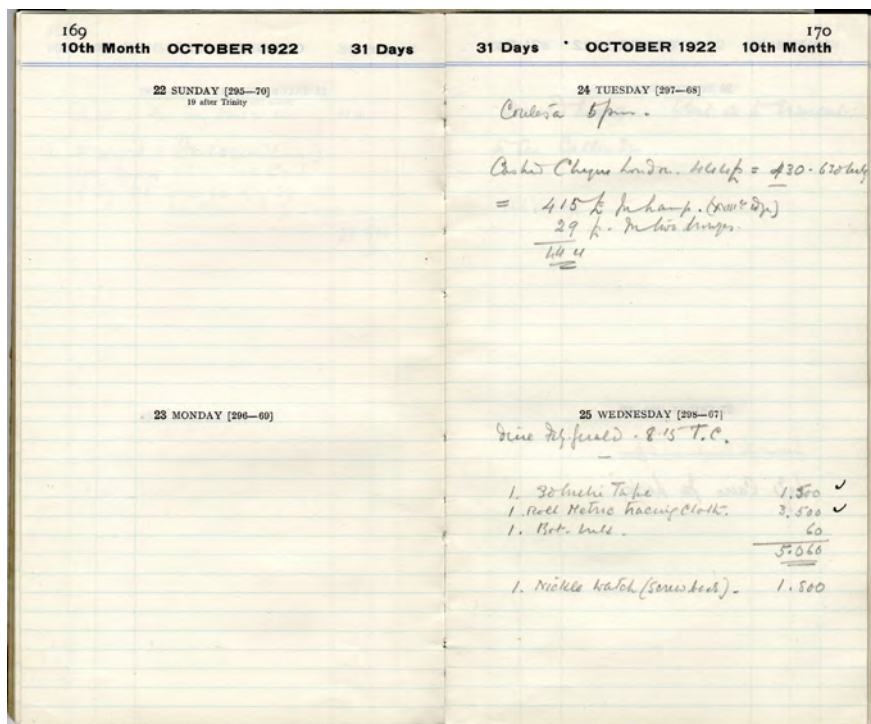 169
10th Month OCTOBER 1922 31 Days
22 SUNDAY [295—70]
19 after Trinity
23 MONDAY [296—69]
170
31 Days OCTOBER 1922 10th Month
24 TUESDAY [297—68]
5 pm.
Cashed Cheque London. = 430 ·
= 415 £ In hand.
29 £. In two
444
25 WEDNESDAY [298—67]
Dine Fitzgerald · 8·15 T.C.
1. 30 Metre Tape 1.500 ✓
1. Roll Metric Tracing Cloth. 3.500 ✓
1. Bot. 60
5.060
1. Nickle Watch (Screw back). 1.800